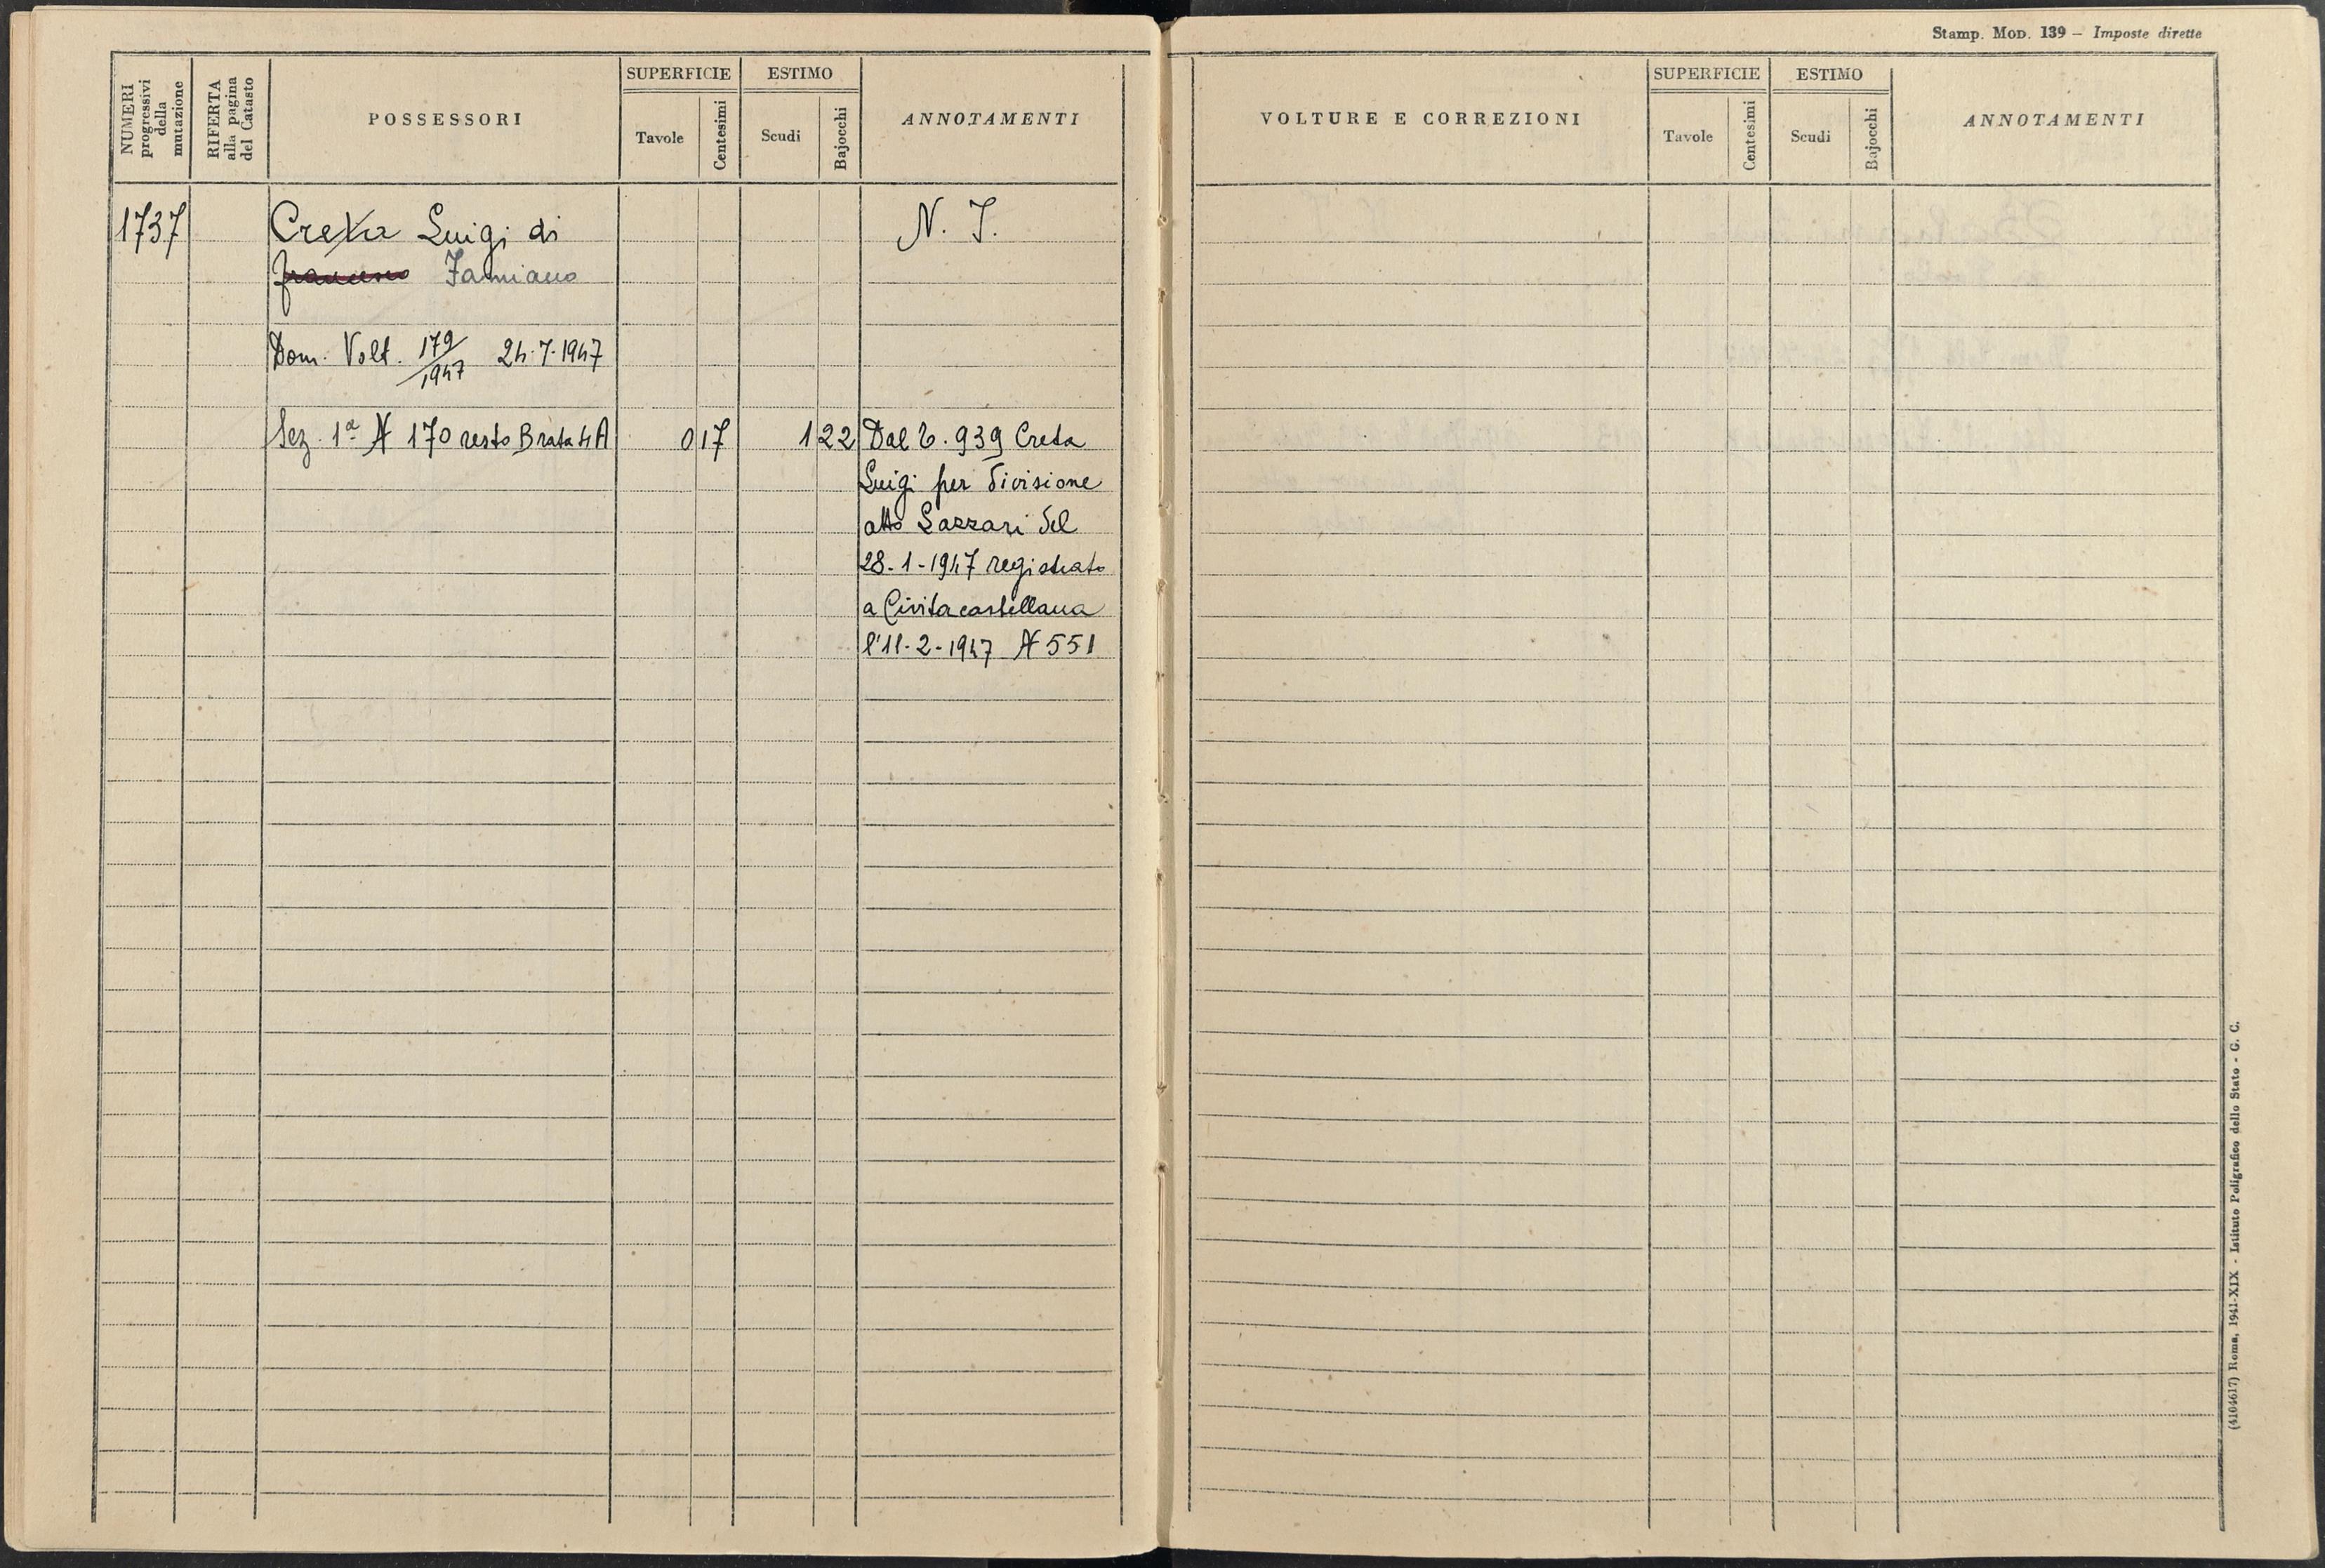 Stamp. Mod. 139 — Imposte dirette
NUMERI progressivi della mutazione
RIFERTA alla pagina del Catasto
POSSESSORI
SUPERFICIE
Tavole
Centesimi
ESTIMO
Scudi
Bajocchi
ANNOTAMENTI
1737
Creta Luigi di
N. I.
francesco Famiano
Dom. Volt. 179/1947 24.7.1947
Sez. 1a N 170 resto B rata 4 A 0 17 1 22
Dal 6. 939 Creta
Luigi per divisione
atto Lazzari del
28-1-1947 registrato
a Civitacastellana
l'11-2-1947 N 551
VOLTURE E CORREZIONI
SUPERFICIE
Tavole
Centesimi
ESTIMO
Scudi
Bajocchi
ANNOTAMENTI
(4104617) Roma, 1941-XIX - Istituto Poligrafico dello Stato - G. C.